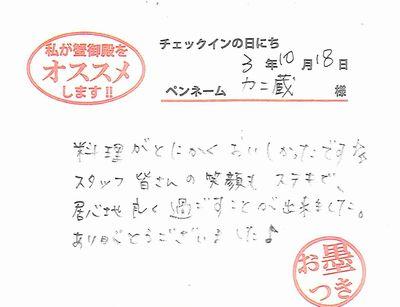 私が蟹御殿を
オススメ
します!!
チェックインの日にち
3 年 10 月 18 日
ペンネーム カニ蔵 様
料理がとにかくおいしかったですな
スタッフ皆さんの笑顔も ステキで、
居心地良く過ごすことが出来ました。
ありがとうございました♪
お墨
つき